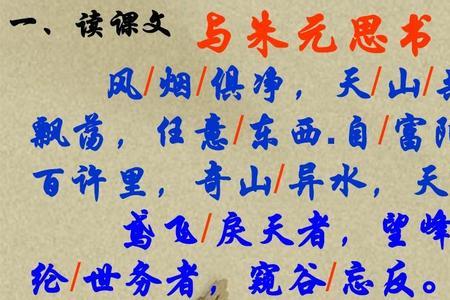 一、读课文
与朱元思书
风/烟/俱净，天/山/
飘荡，任意/东西.自/富阳
百许里，奇山/异水，天
鸢飞/戾天者，望峰
纶/世务者，窥谷/忘反。